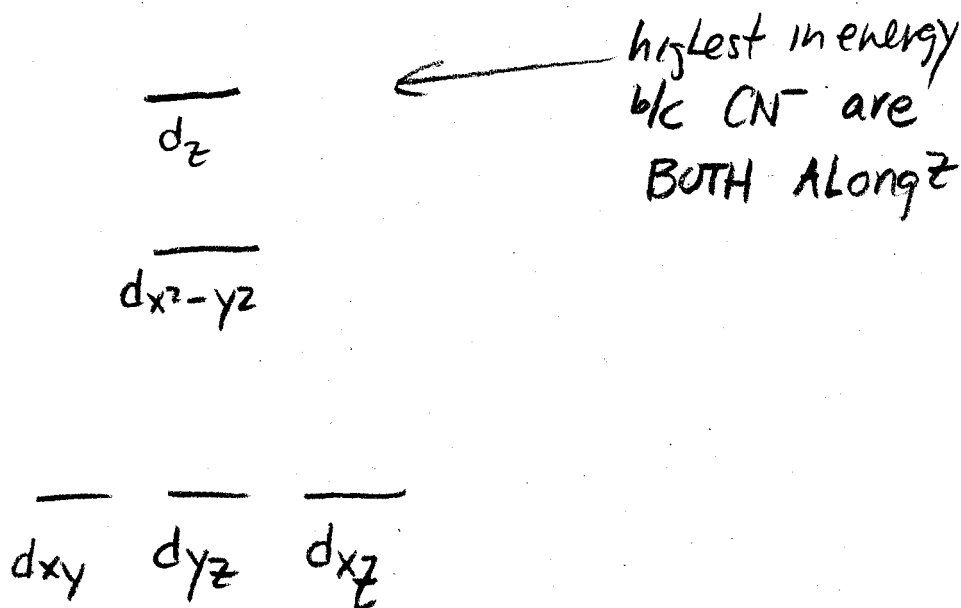 highest in energy
b/c CN⁻ are
BOTH ALong z
dz
dx²-y²
dxy dyz dxz